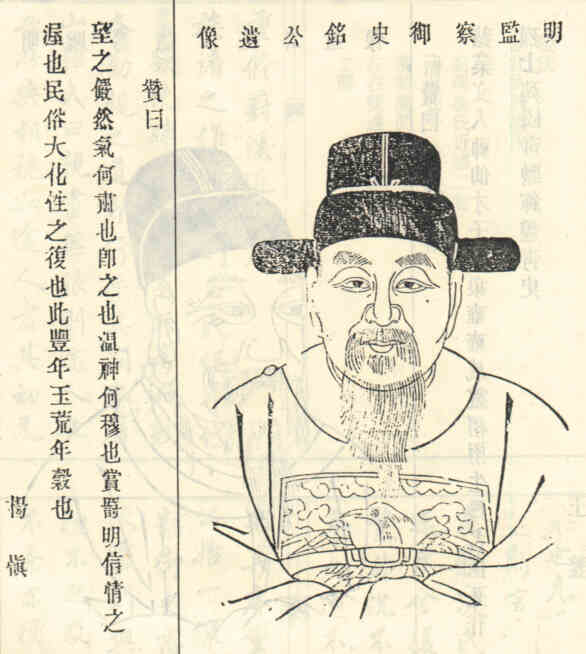 明監察御史銘公遺像
贊曰
望之儼然氣何肅也卽之也温神何穆也賞罸明信情之
渥也民俗大化性之復也此豐年玉荒年穀也
楊愼